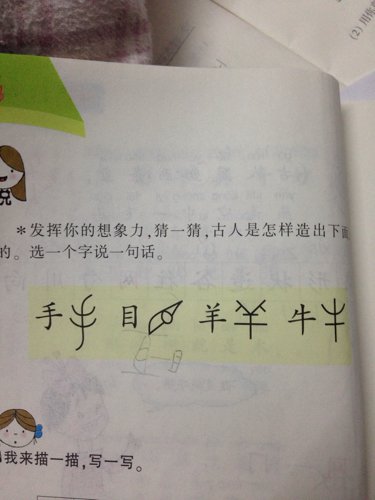 (2)用你
说
*发挥你的想象力,猜一猜,古人是怎样造出下面
的。选一个字说一句话。
手 目 羊 牛
我来描一描,写一写。